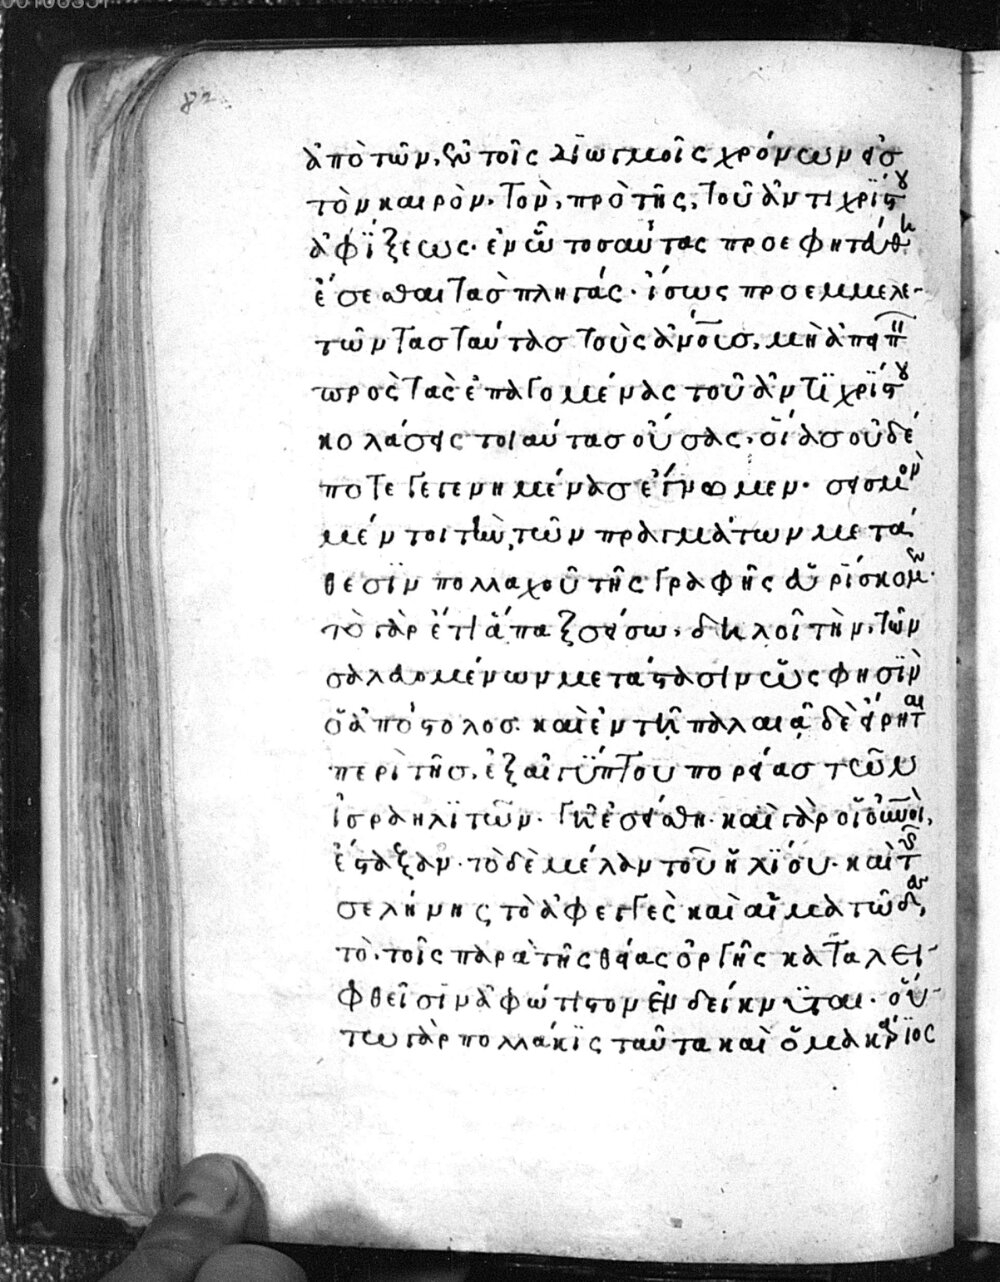 82
ἀπὸ τῶν ἐν τοῖς διωγμοῖς χρόνων εἰσ
τὸν καιρὸν. τὸν πρὸ τῆς, τοῦ ἀντιχρίϛου
ἀφΐξεως. ἐν ᾧ τοσαύτας προεφητεύθη
ἔσεσθαι τασ πληγάς. ἴσως προεμμελε-
τῶν τασ ταύτασ τοὺς ἀν̅ο̅ι̅σ, μὴ ἀπειπ
πρὸς τὰς ἐπαγομένας τοῦ ἀντϊχρίϛου
κολάσεις τοιαύτασ οὔσας. οἵασ οὐδέ
ποτε γεγενημένασ ἔγνωμεν. σεισμὸν
μέντοι τὴν τῶν πραγμάτων μετά
θεσϊν πολλαχοῦ τῆς γραφῆς εὑρίσκομεν.
τὸ γὰρ ἔτι ἅπαξ σείσω. δηλοῖ τὴν τῶν
σαλευομένων μετάϛασιν ὥς φησϊν
ὁ ἀπόϛολοσ. καὶ ἐν τῇ παλαιᾷ δὲ εἴρηται
περὶ τῆσ. ἐξ αἰγύπτου πορείασ τῶν
ἰσραηλϊτῶν. γῆ ἐσείσθη. καὶ γὰρ οἱ ο̅υ̅ν̅οὶ,
ἔϛαξαν. τὸ δὲ μέλαν τοῦ ἡλίου. καὶ τῆς
σελήνης τὸ ἀφεγγὲς καὶ αἱματῶδες,
τὸ τοῖς παρὰ τῆς θείας ὀργῆς καταλει-
φθεῖσϊν ἀφώτιϛον ἐνδείκνϋται. οὕ-
τω γὰρ πολλάκϊς ταῦτα καὶ ὁ μακάρϊος